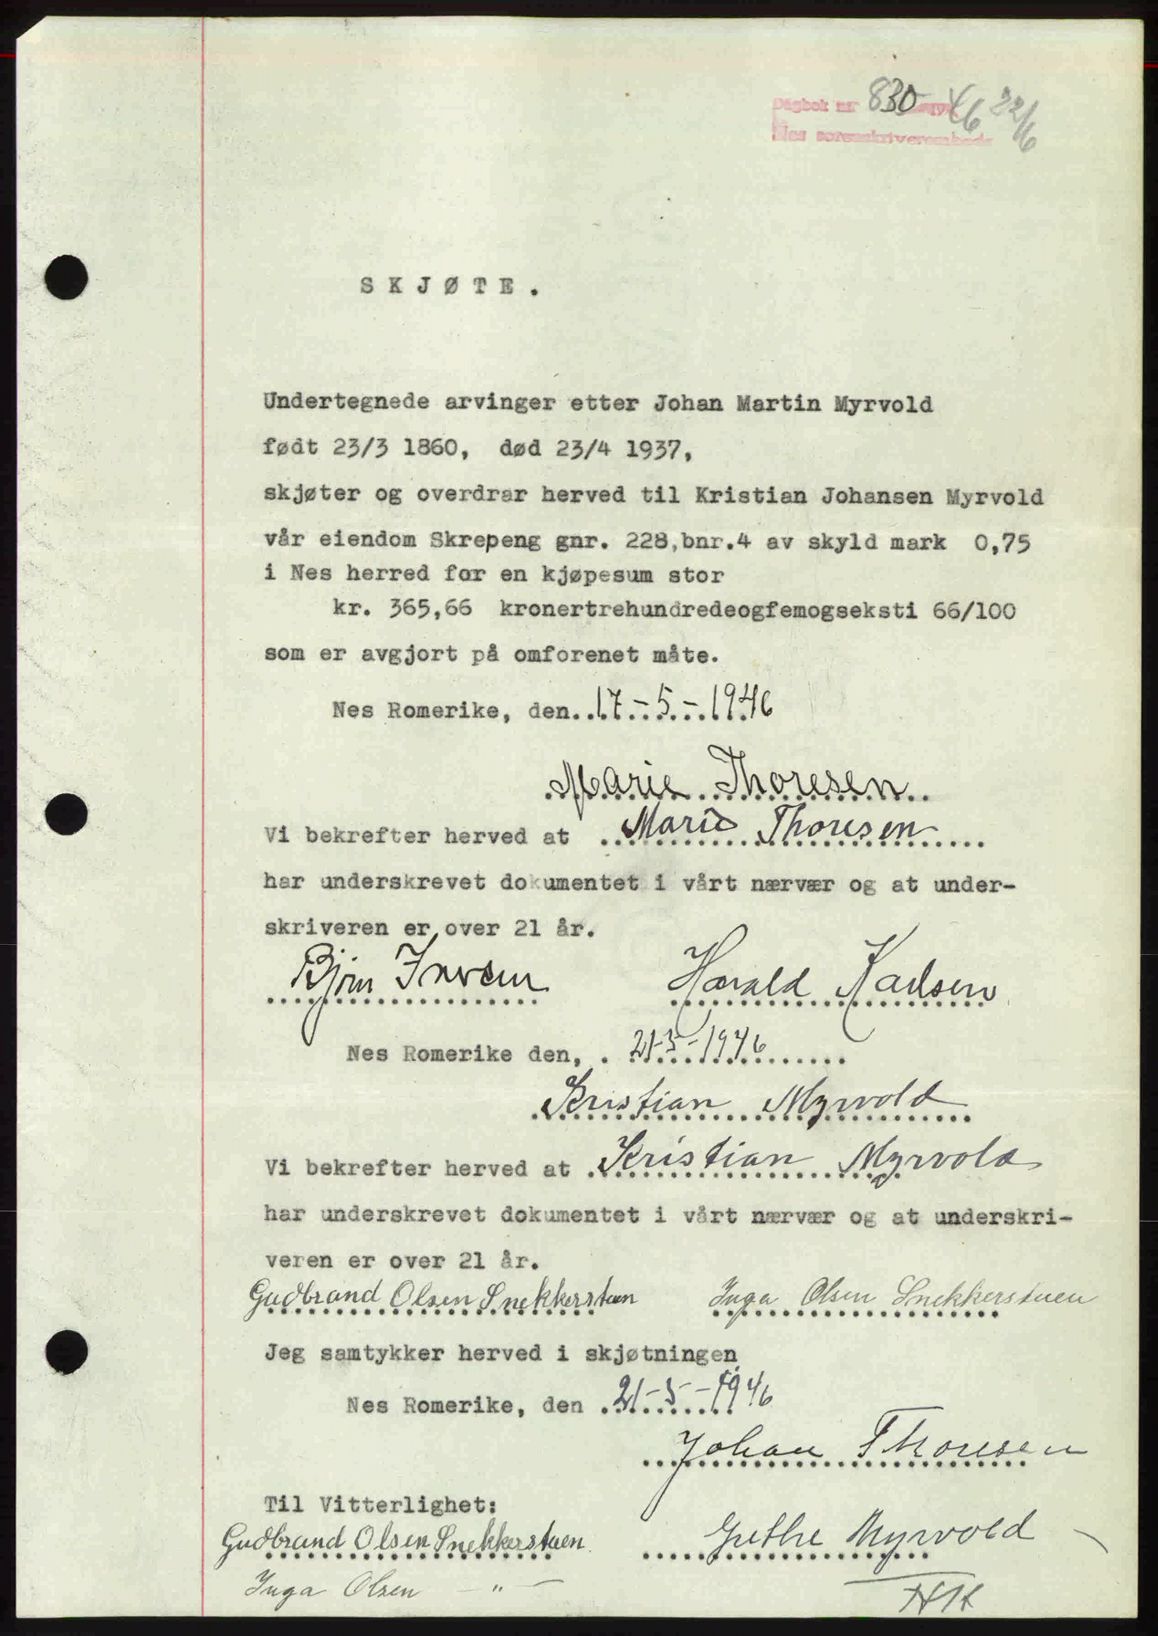 Dagbok nr 830 46 22/6
Nes sorenskriverembede
SKJØTE.
Undertegnede arvinger etter Johan Martin Myrvold
født 23/3 1860, død 23/4 1937,
skjøter og overdrar herved til Kristian Johansen Myrvold
vår eiendom Skrepeng gnr. 228,bnr.4 av skyld mark 0,75
i Nes herred for en kjøpesum stor
kr. 365,66 kronertrehundredeogfemogseksti 66/100
som er avgjort på omforenet måte.
Nes Romerike, den 17-5-1946
Marie Thoresen
Vi bekrefter herved at Marie Thoresen
har underskrevet dokumentet i vårt nærvær og at under-
skriveren er over 21 år.
Bjørn Harald Karlsen
Nes Romerike den, 21-5-1946
Kristian Myrvold
Vi bekrefter herved at Kristian Myrvold
har underskrevet dokumentet i vårt nærvær og at underskri-
veren er over 21 år.
Gudbrand Olsen Snekkerstuen Inga Olsen Snekkerstuen
Jeg samtykker herved i skjøtningen
Nes Romerike, den 21-5-1946
Johan Thoresen
Til Vitterlighet:
Gudbrand Olsen Snekkerstuen Grethe Myrvold
Inga Olsen — " —